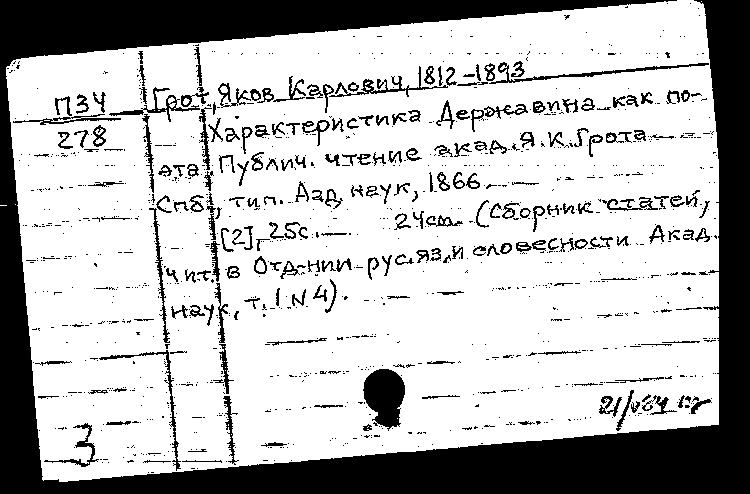 П34 Грот, Яков Карлович, 1812-1893
278 Характеристика Державина как по-
эта. Публич. чтение акад. Я.К.Грота
Спб., тип. Аад. наук, 1866.
[2], 25с. 24см. (Сборник статей,
чит. в Отд-нии рус.яз. и словесности Акад.
наук, т. I N 4).
3